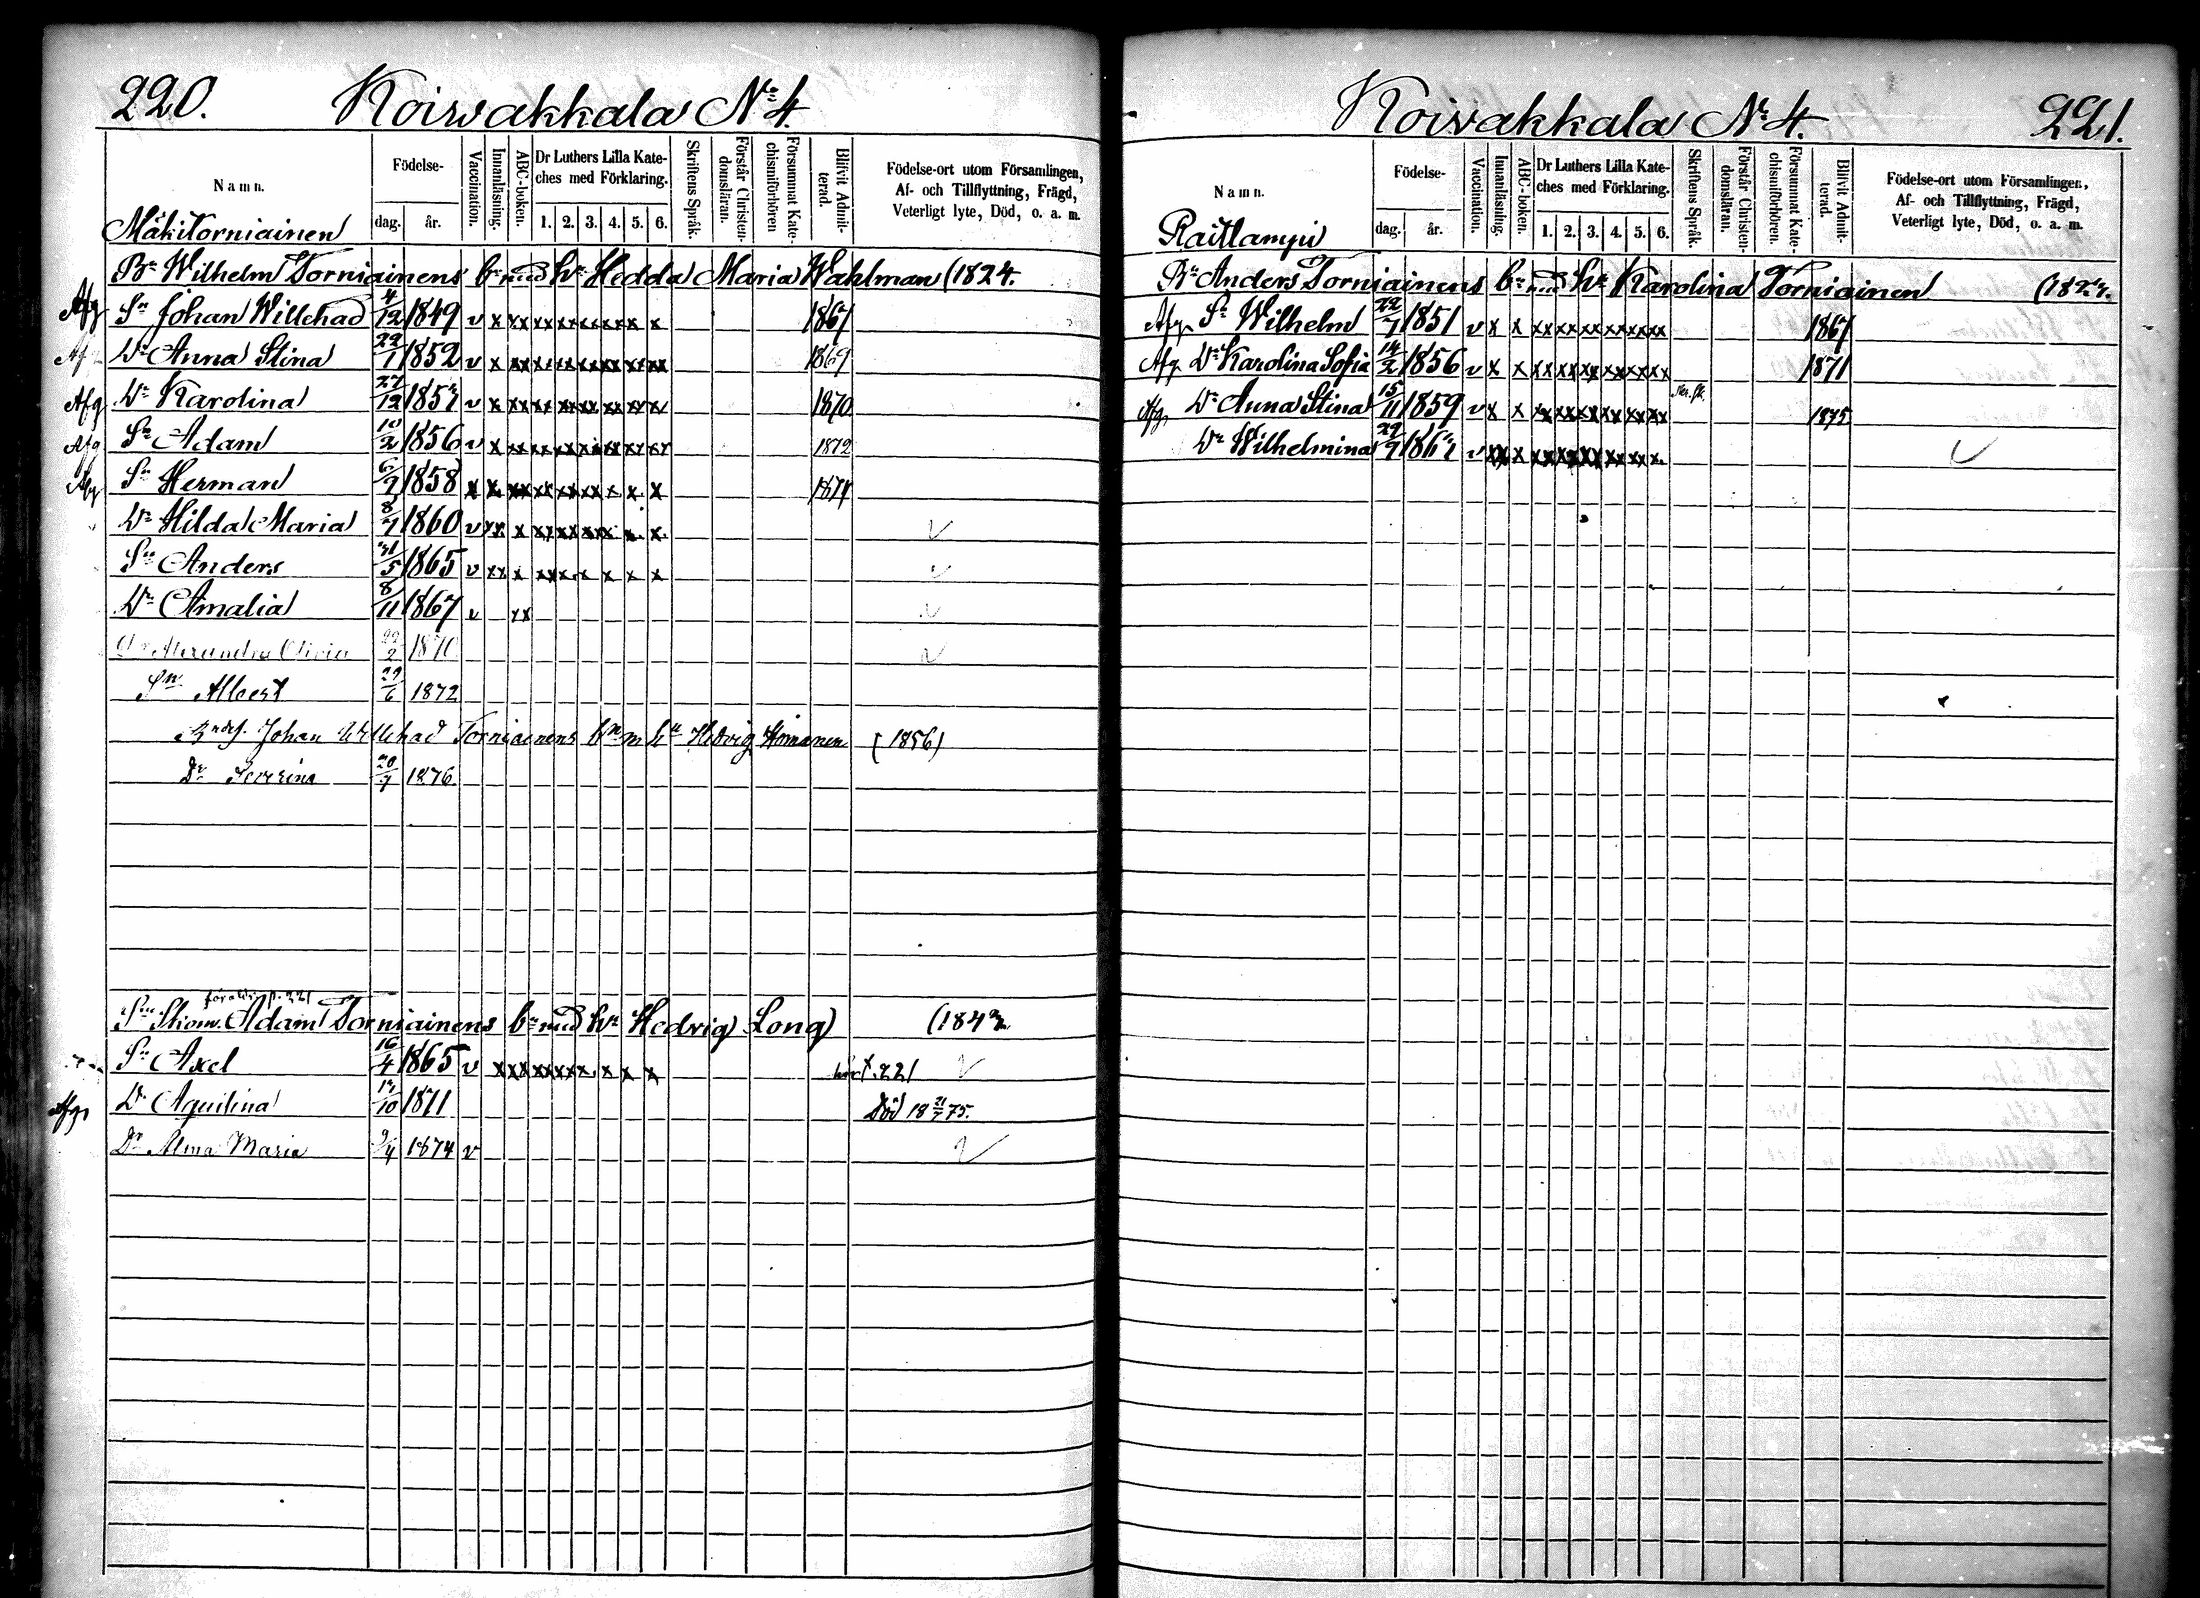 220. Koivakkala No 4.
Namn.
Födelse-
dag. år.
Vaccination.
Innanläsning.
ABC-boken.
Dr Luthers Lilla Kate-
ches med Förklaring.
1. 2. 3. 4. 5. 6.
Skriftens Språk.
Förstår Christen-
domsläran.
Försummat Kate-
chismiförhören
Blifvit Admit-
terad.
Födelse-ort utom Församlingen,
Af- och Tillflyttning, Frägd,
Veterligt lyte, Död, o. a. m.
Mäkitorniainen
Bn Wilhelm Torniainens bn med hu Hedda Maria Wahlman (1824.
Afg Sn Johan Willehad 4/12 1849 v x xx xx xx xx xx x x 1867
Afg Dr Anna Stina 1852 v x xxx xx xx xx xx xx xx 1869
Afg Dr Karolina 27/12 v x xxx xx xx xx xx xx 1870
Afg Sn Adam 10/2 1856 v x xxx xx xx xx xx xx 1872
Afg Sn Herman 6/7 1858 x x xxx xx xx xx x x x 1874
Dr Hilda Maria 8/7 1860 v xx x xx xx xx x x x
Sn Anders 31/5 1865 v xx x xx x x x x x
Dr Amalia 8/11 1867 v xx
Dr Alexandra Olivia 22/2 1870
Sn Albert 29/6 1872
Johan Willehad Torniainens bn m hu Hedvig Homanen (1856)
Dr Severina 20/7 1876.
p. 221
Sn Adam Torniainens bn med hu Hedvig Long
Sn Axel 16/4 1865 v x xx xx xx x x x x 221
Afg Dr Aquilina 1871 Död 18 75.
Dr Alma Maria 9/4 1874 v
Koivakkala No 4. 221.
Namn.
Födelse-
dag. år.
Vaccination.
Innanläsning.
ABC-boken.
Dr Luthers Lilla Kate-
ches med Förklaring.
1. 2. 3. 4. 5. 6.
Skriftens Språk.
Förstår Christen-
domsläran.
Försummat Kate-
chismiförhören.
Blifvit Admit-
terad.
Födelse-ort utom Församlingen,
Af- och Tillflyttning, Frägd,
Veterligt lyte, Död, o. a. m.
Raitlampi
Bn Anders Torniainens bn med hu Karolina Torniainen
Afg Sn Wilhelm 22/7 1851 v x x xx xx xx xx xx xx 1867
Afg Dr Karolina Sofia 14/2 1856 v x x xx xx xx xx xx xx 1871
Afg Dr Anna Stina 15/11 1859 v x x xx xx xx xx xx xx 1875
Dr Wilhelmina 29/7 v xx x xx xx xx xx xx x